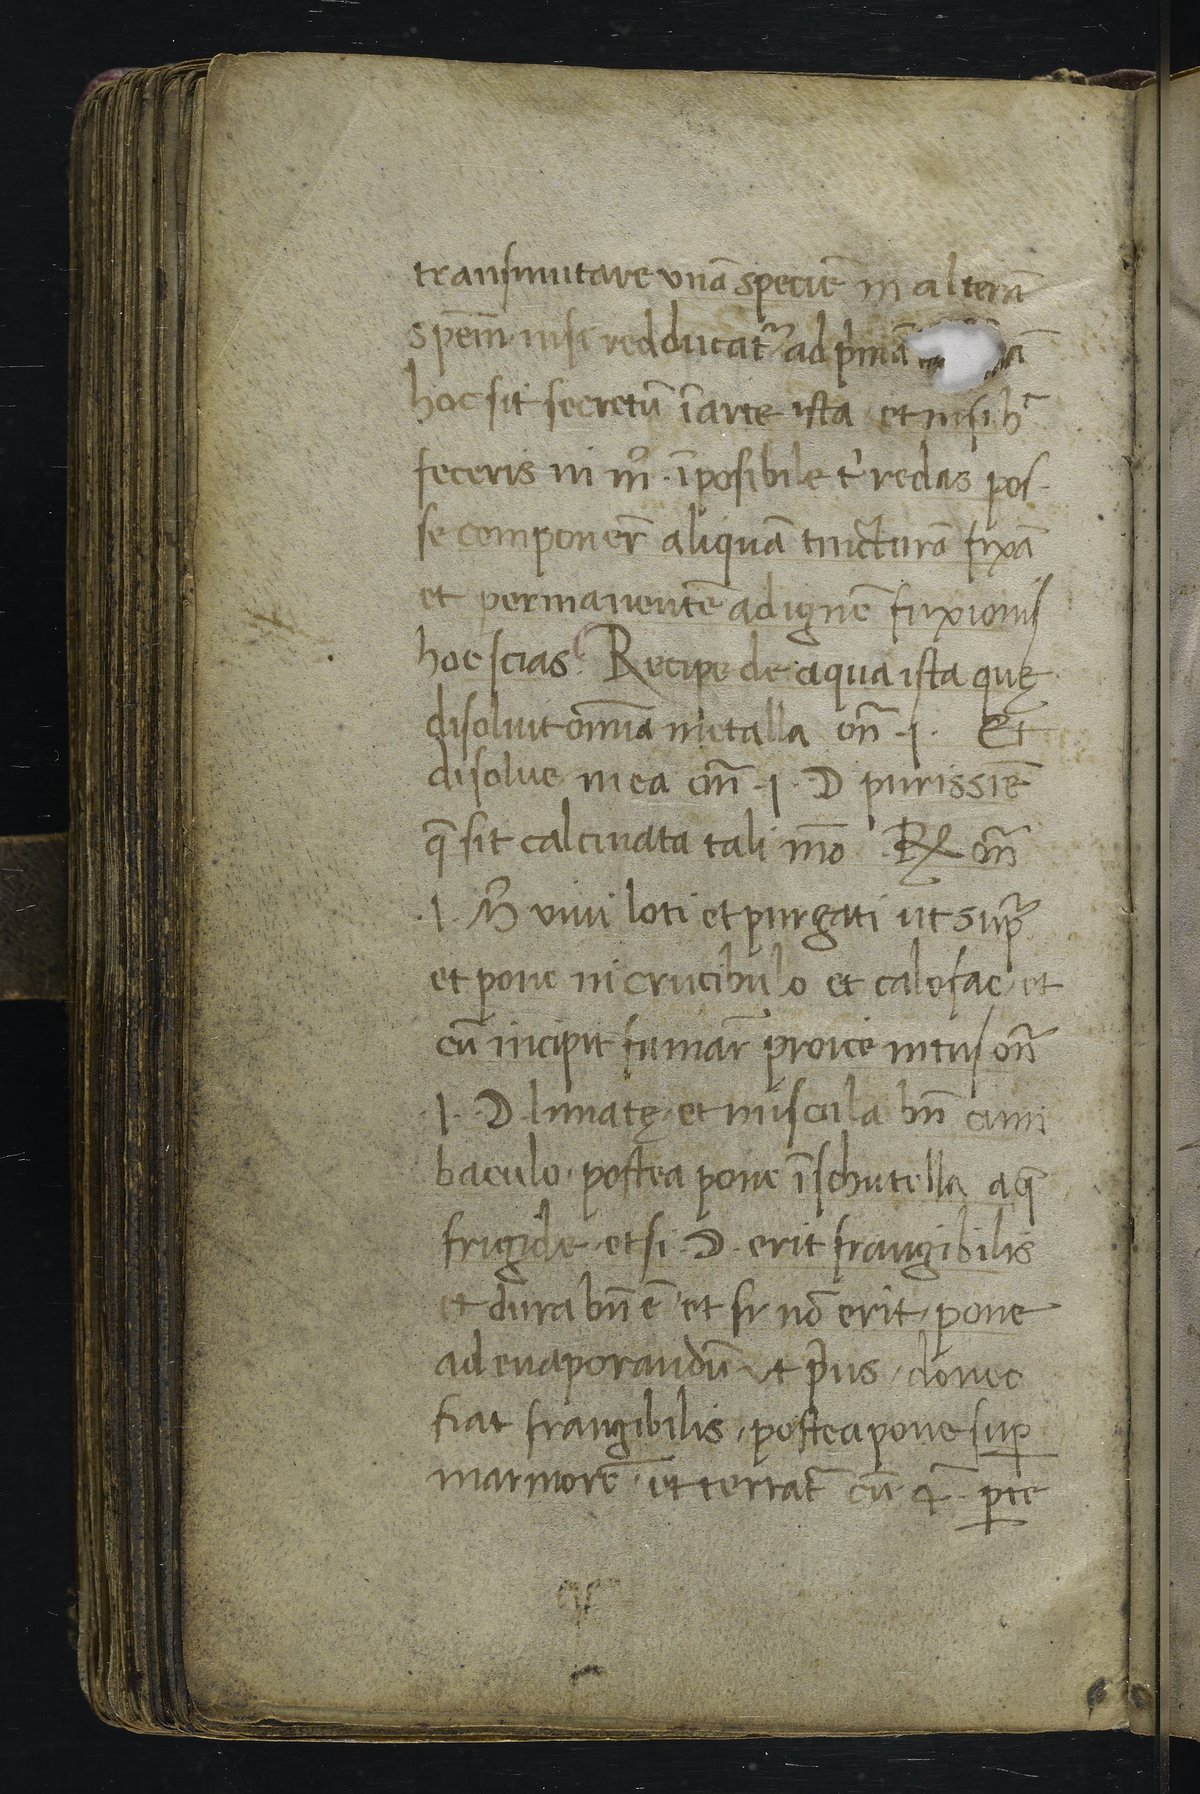 transmutare unā speciē in alterā
spēm nisi redducat᷑ ad p̄mā
hoc sit secretū ī arte ista et nisi h᷑
feceris in m̊ · īposibile t' redas pos-
se componer̄ aliquā tincturā fixā
et permanentē ad ignē fuxionis
hoc scias Recipe de aqua ista quę
disoluit omnia metalla on̄ ·j· Et
disolue in ea on̄ ·j· D purissiē
q̄ sit calcinata tali mō ℞ on̄
·j· M̄ vivi loti et purgati ut sup᷑
et pone in crucibulo et calefac et
cū incipit fumar̄ proice intus on̄
·j· D limatę et miscula bn̄ cum
baculo · postea pone ī schutella aq̄
frigide et si D erit frangibilis
et dura bn̄ ē et si nō erit pone
ad evaporandū ut p̄us donec
fiat frangibilis, postea pone sup̱
marmorē et terrat᷑ cū 4 ꝑte